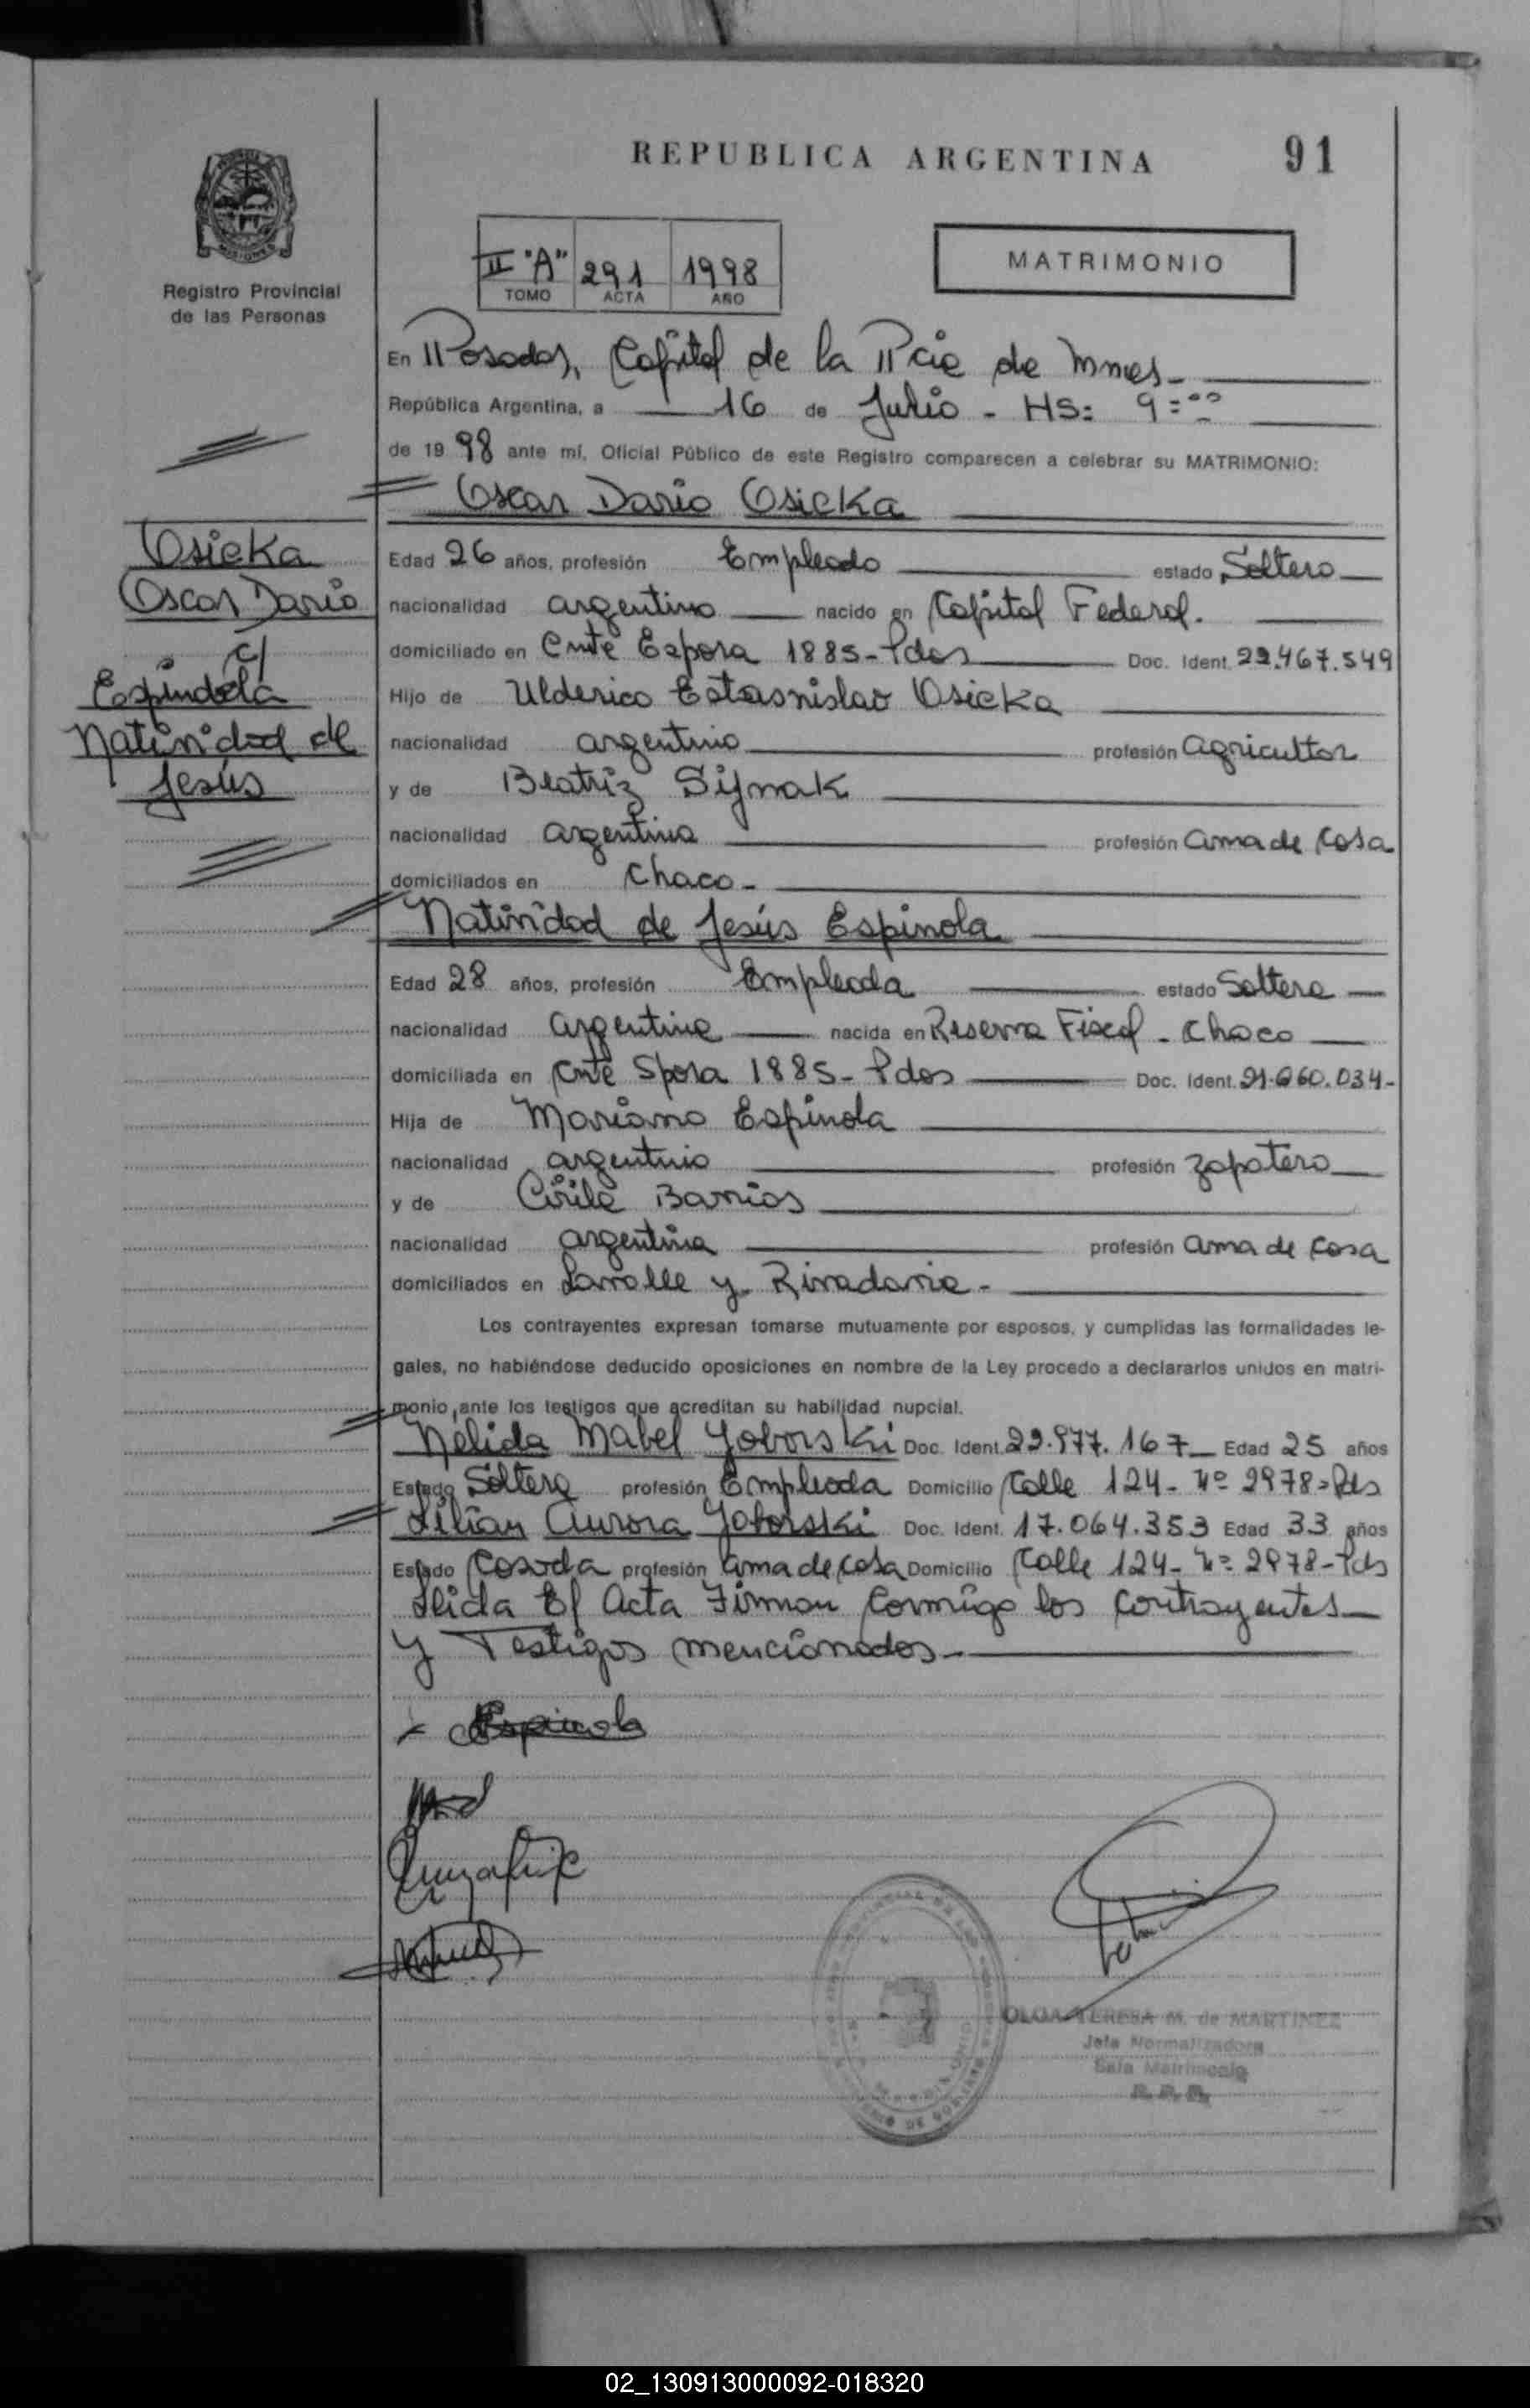 REPUBLICA ARGENTINA
91
II "A" 291 1998
TOMO ACTA AÑO
MATRIMONIO
Registro Provincial
de las Personas
En Posadas, Capital de la Pcia de Mnes-
República Argentina, a 16 de Julio - HS: 9=00
de 1998 ante mí, Oficial Público de este Registro comparecen a celebrar su MATRIMONIO:
Oscar Dario Osicka
Osicka
Oscar Dario
c/
Espindola
Natividad de
Jesús
Edad 26 años, profesión Empleado estado Soltero
nacionalidad argentino nacido en Capital Federal.
domiciliado en Cnte Espora 1885-Pdas Doc. Ident. 22.467.549
Hijo de Ulderico Estasnislao Osicka
nacionalidad argentino profesión agricultor
y de Beatriz Sijmak
nacionalidad argentina profesión ama de casa
domiciliados en Chaco-
Natividad de Jesús Espinola
Edad 28 años, profesión Empleada estado Soltera
nacionalidad argentina nacida en Reserva Fiscal - Chaco
domiciliada en Cnte Spora 1885- Pdas Doc. Ident. 21.860.034-
Hija de Mariano Espinola
nacionalidad argentino profesión zapatero
y de Cirila Barrios
nacionalidad argentina profesión ama de casa
domiciliados en Lavalle y Rivadavia-
Los contrayentes expresan tomarse mutuamente por esposos, y cumplidas las formalidades le-
gales, no habiéndose deducido oposiciones en nombre de la Ley procedo a declararlos unidos en matri-
monio, ante los testigos que acreditan su habilidad nupcial.
Nelida Mabel Yoborski Doc. Ident. 22.977.167 Edad 25 años
Estado Soltera profesión Empleada Domicilio Calle 124- Nº 2978-Pds
Lilian Aurora Yoborski Doc. Ident. 17.064.353 Edad 33 años
Estado Casada profesión ama de casa Domicilio Calle 124- Nº 2978-Pds
Leida El Acta Firman conmigo los contrayentes
y Testigos mencionados-
Espinola
OLGA TERESA M. de MARTINEZ
Jefa Normalizadora
Sala Matrimonio
R. P. P.
02_130913000092-018320